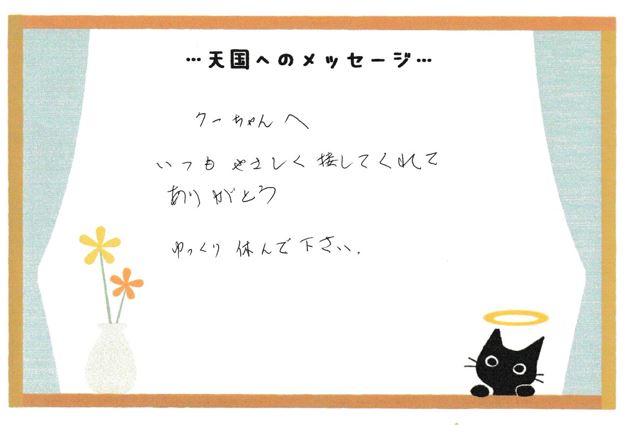 …天国へのメッセージ…
クーちゃんへ
いつもやさしく接してくれて
ありがとう
ゆっくり休んで下さい.